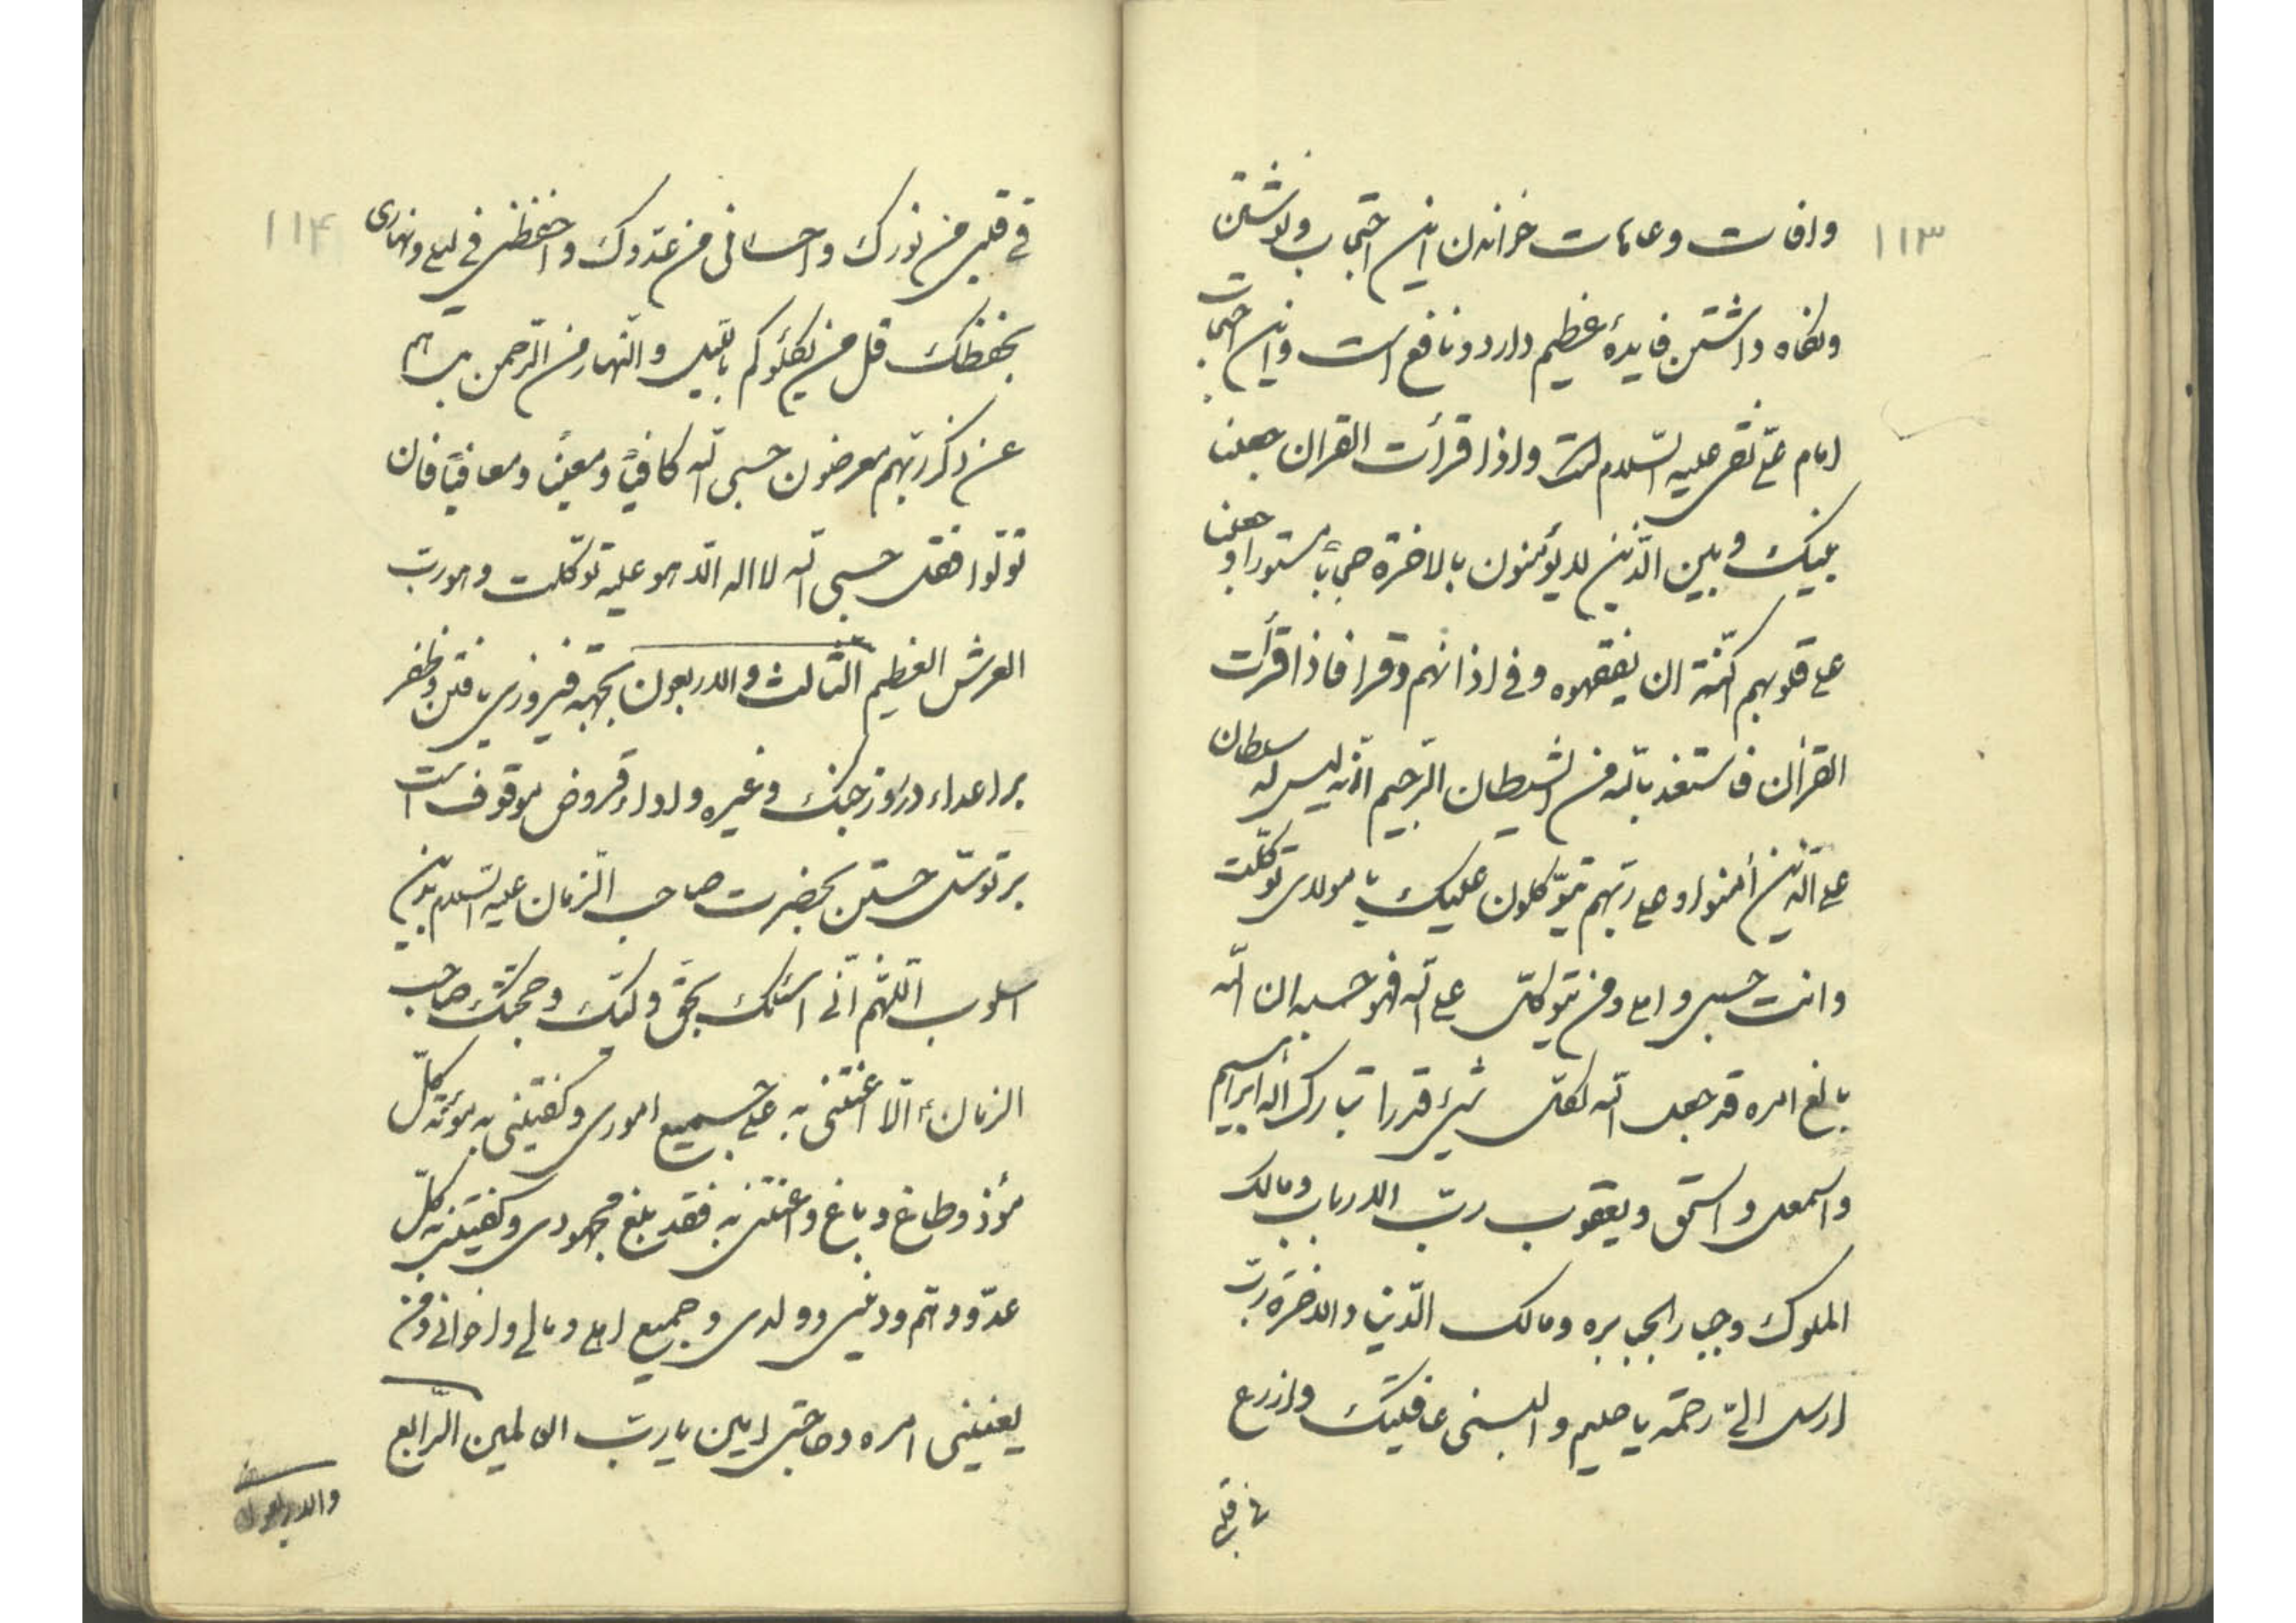 ۱۱۳
وافات وعاهات خواندن این احتجاب و نوشتن
ونکاه داشتن فایدهٔ عظیم دارد و نافع است واین احتجاب
امام علی نقی علیه السلام است واذا قرأت القران جعلنا
بینک وبین الّذین لا یؤمنون بالاخرة حجاباً مستورا و جعلنا
علی قلوبهم اکنّة ان یفقهوه وفی اذانهم وقرا فاذا قرأت
القرأن فاستعذ بالله من الشیطان الرّجیم انّه لیس له سلطان
علی الّذین أمنوا وعلی ربّهم یتوّکلون علیک یا مولای توکّلت
وانت حسبی واملی ومن یتوکلّ علی الله فهو حسبه ان الله
بالغ امره قد جعل الله لکلّ شیء قدرا تبارک اله ابراهیم
واسمعیل واسحق ویعقوب ربّ الارباب ومالک
الملوک وجبار الجبابره ومالک الدّنیا والاخرة ربّ
ارسل الیّ رحمة یا حلیم والبسنی عافیتک وازرع
فی قلبی
۱۱۴
فی قلبی من نورک واحسانی من عدّوک واحفظنی فی لیلی ونهاری
بحفظک قل من یکلؤکم باللّیل والنّهار من الرّحمن بل هم
عن ذکر ربّهم معرضون حسبی الله کافیاً ومعیناً ومعافیاً فان
تولّوا فقل حسبی الله لا اله الّا هو علیه توکّلت وهو ربّ
العرش العظیم الثّالث والاربعون بجهة فیروزی یافتن وظفر
بر اعداء در روز جنک وغیره واداء قروض موقوف است
بر توسّل جستن بحضرت صاحب الزمان علیه السلام بدین
اسلوب اللّهم انّی اسئلک بحّق ولیّک وحجّتک صاحب
الزمان ء الّا اعنتنی به علی جمیع اموری وکفیتنی به مؤنة کلّ
مؤذ وطاغ وباغ واعنتنی به فقد بلغ مجهودی وکفیتنی به کلّ
عدّو وهّم ودین وولدی وجمیع اهلی ومالی واخوانی ومن
یعنینی امره وحاجتی امین یا ربّ العالمین الرّابع
والاربعون